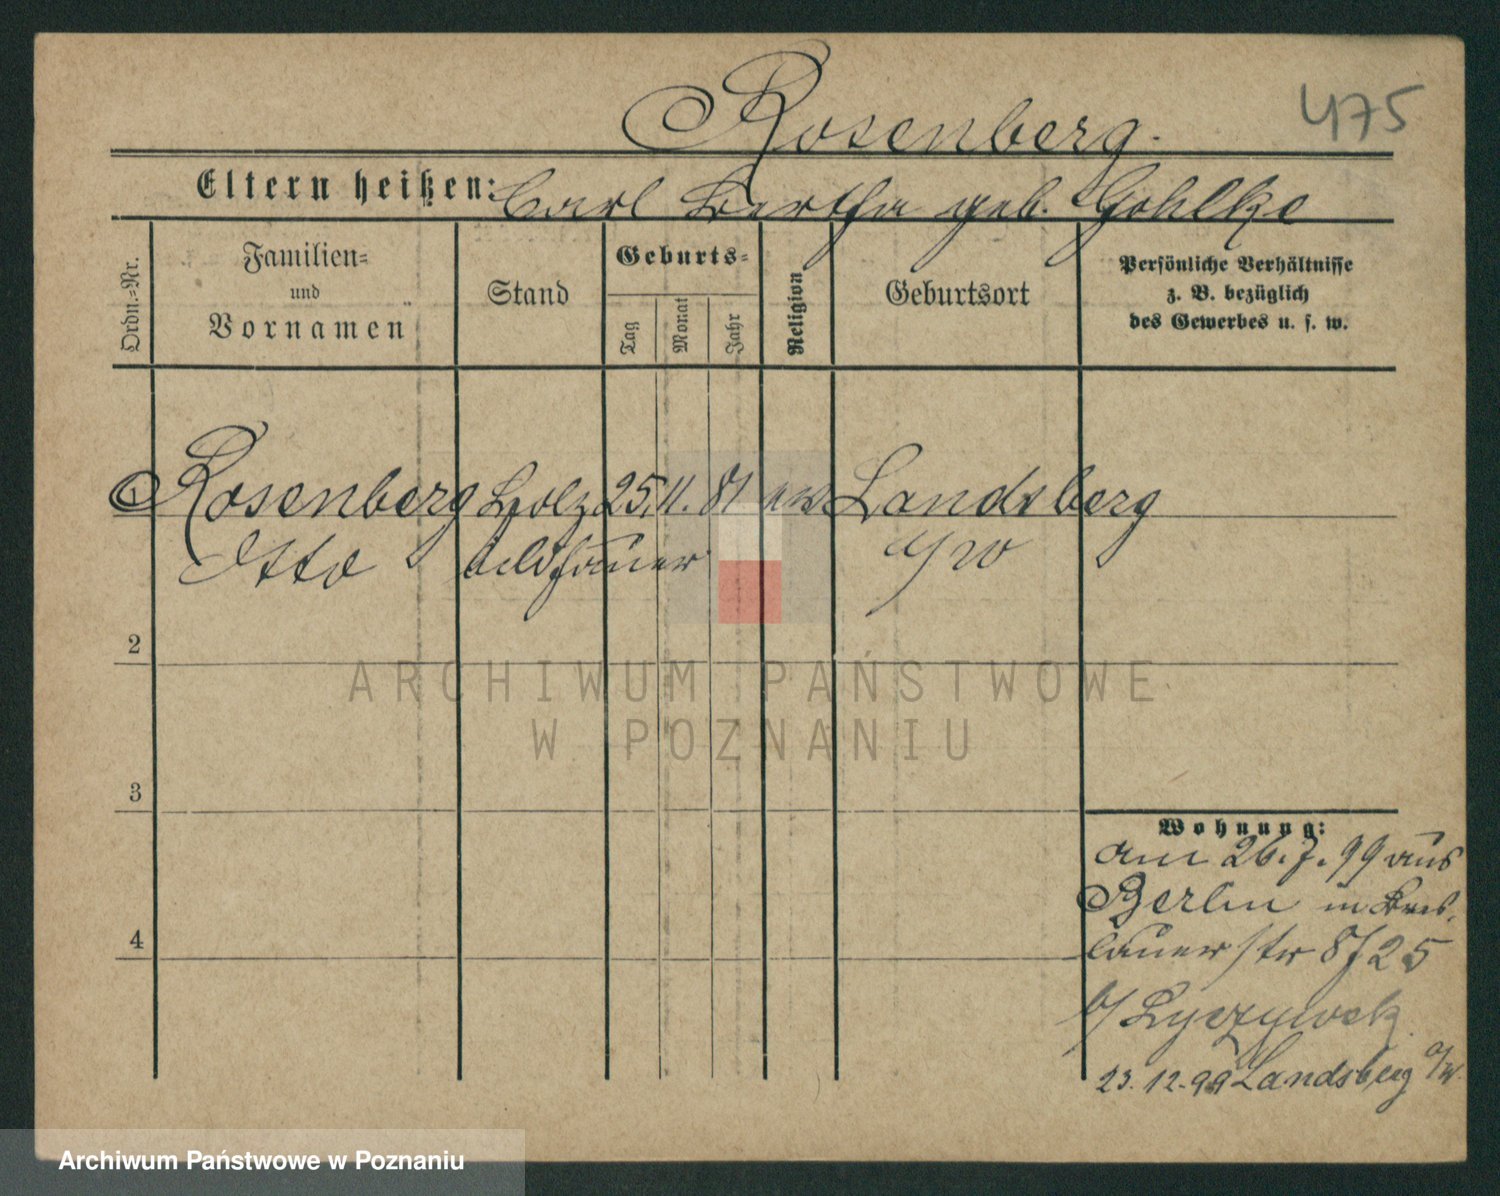 475
Rosenberg.
Eltern heißen: Carl Bertha geb. Gohlke
Ordn.-Nr.
Familien-
und
Vornamen
Stand
Geburts-
Tag
Monat
Jahr
Religion
Geburtsort
Persönliche Verhältnisse
z. B. bezüglich
des Gewerbes u. s. w.
1 Rosenberg Holz 25. 11. 81 ew Landsberg
Otto bildhauer a/W
2
ARCHIWUM PAŃSTWOWE
W POZNANIU
3
Wohnung:
am 26.7.99 aus
Berlin in Bres-
lauerstr
b/
4
23.12.99 Landsberg a/W.
Archiwum Państwowe w Poznaniu